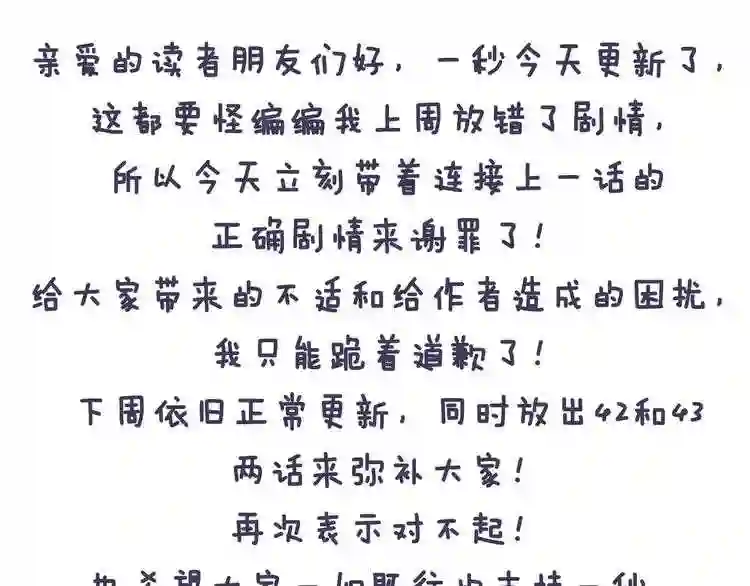 亲爱的读者朋友们好，一秒今天更新了，
这都要怪编编我上周放错了剧情，
所以今天立刻带着连接上一话的
正确剧情来谢罪了！
给大家带来的不适和给作者造成的困扰，
我只能跪着道歉了！
下周依旧正常更新，同时放出42和43
两话来弥补大家！
再次表示对不起！
也希望大家一如既往的支持一秒